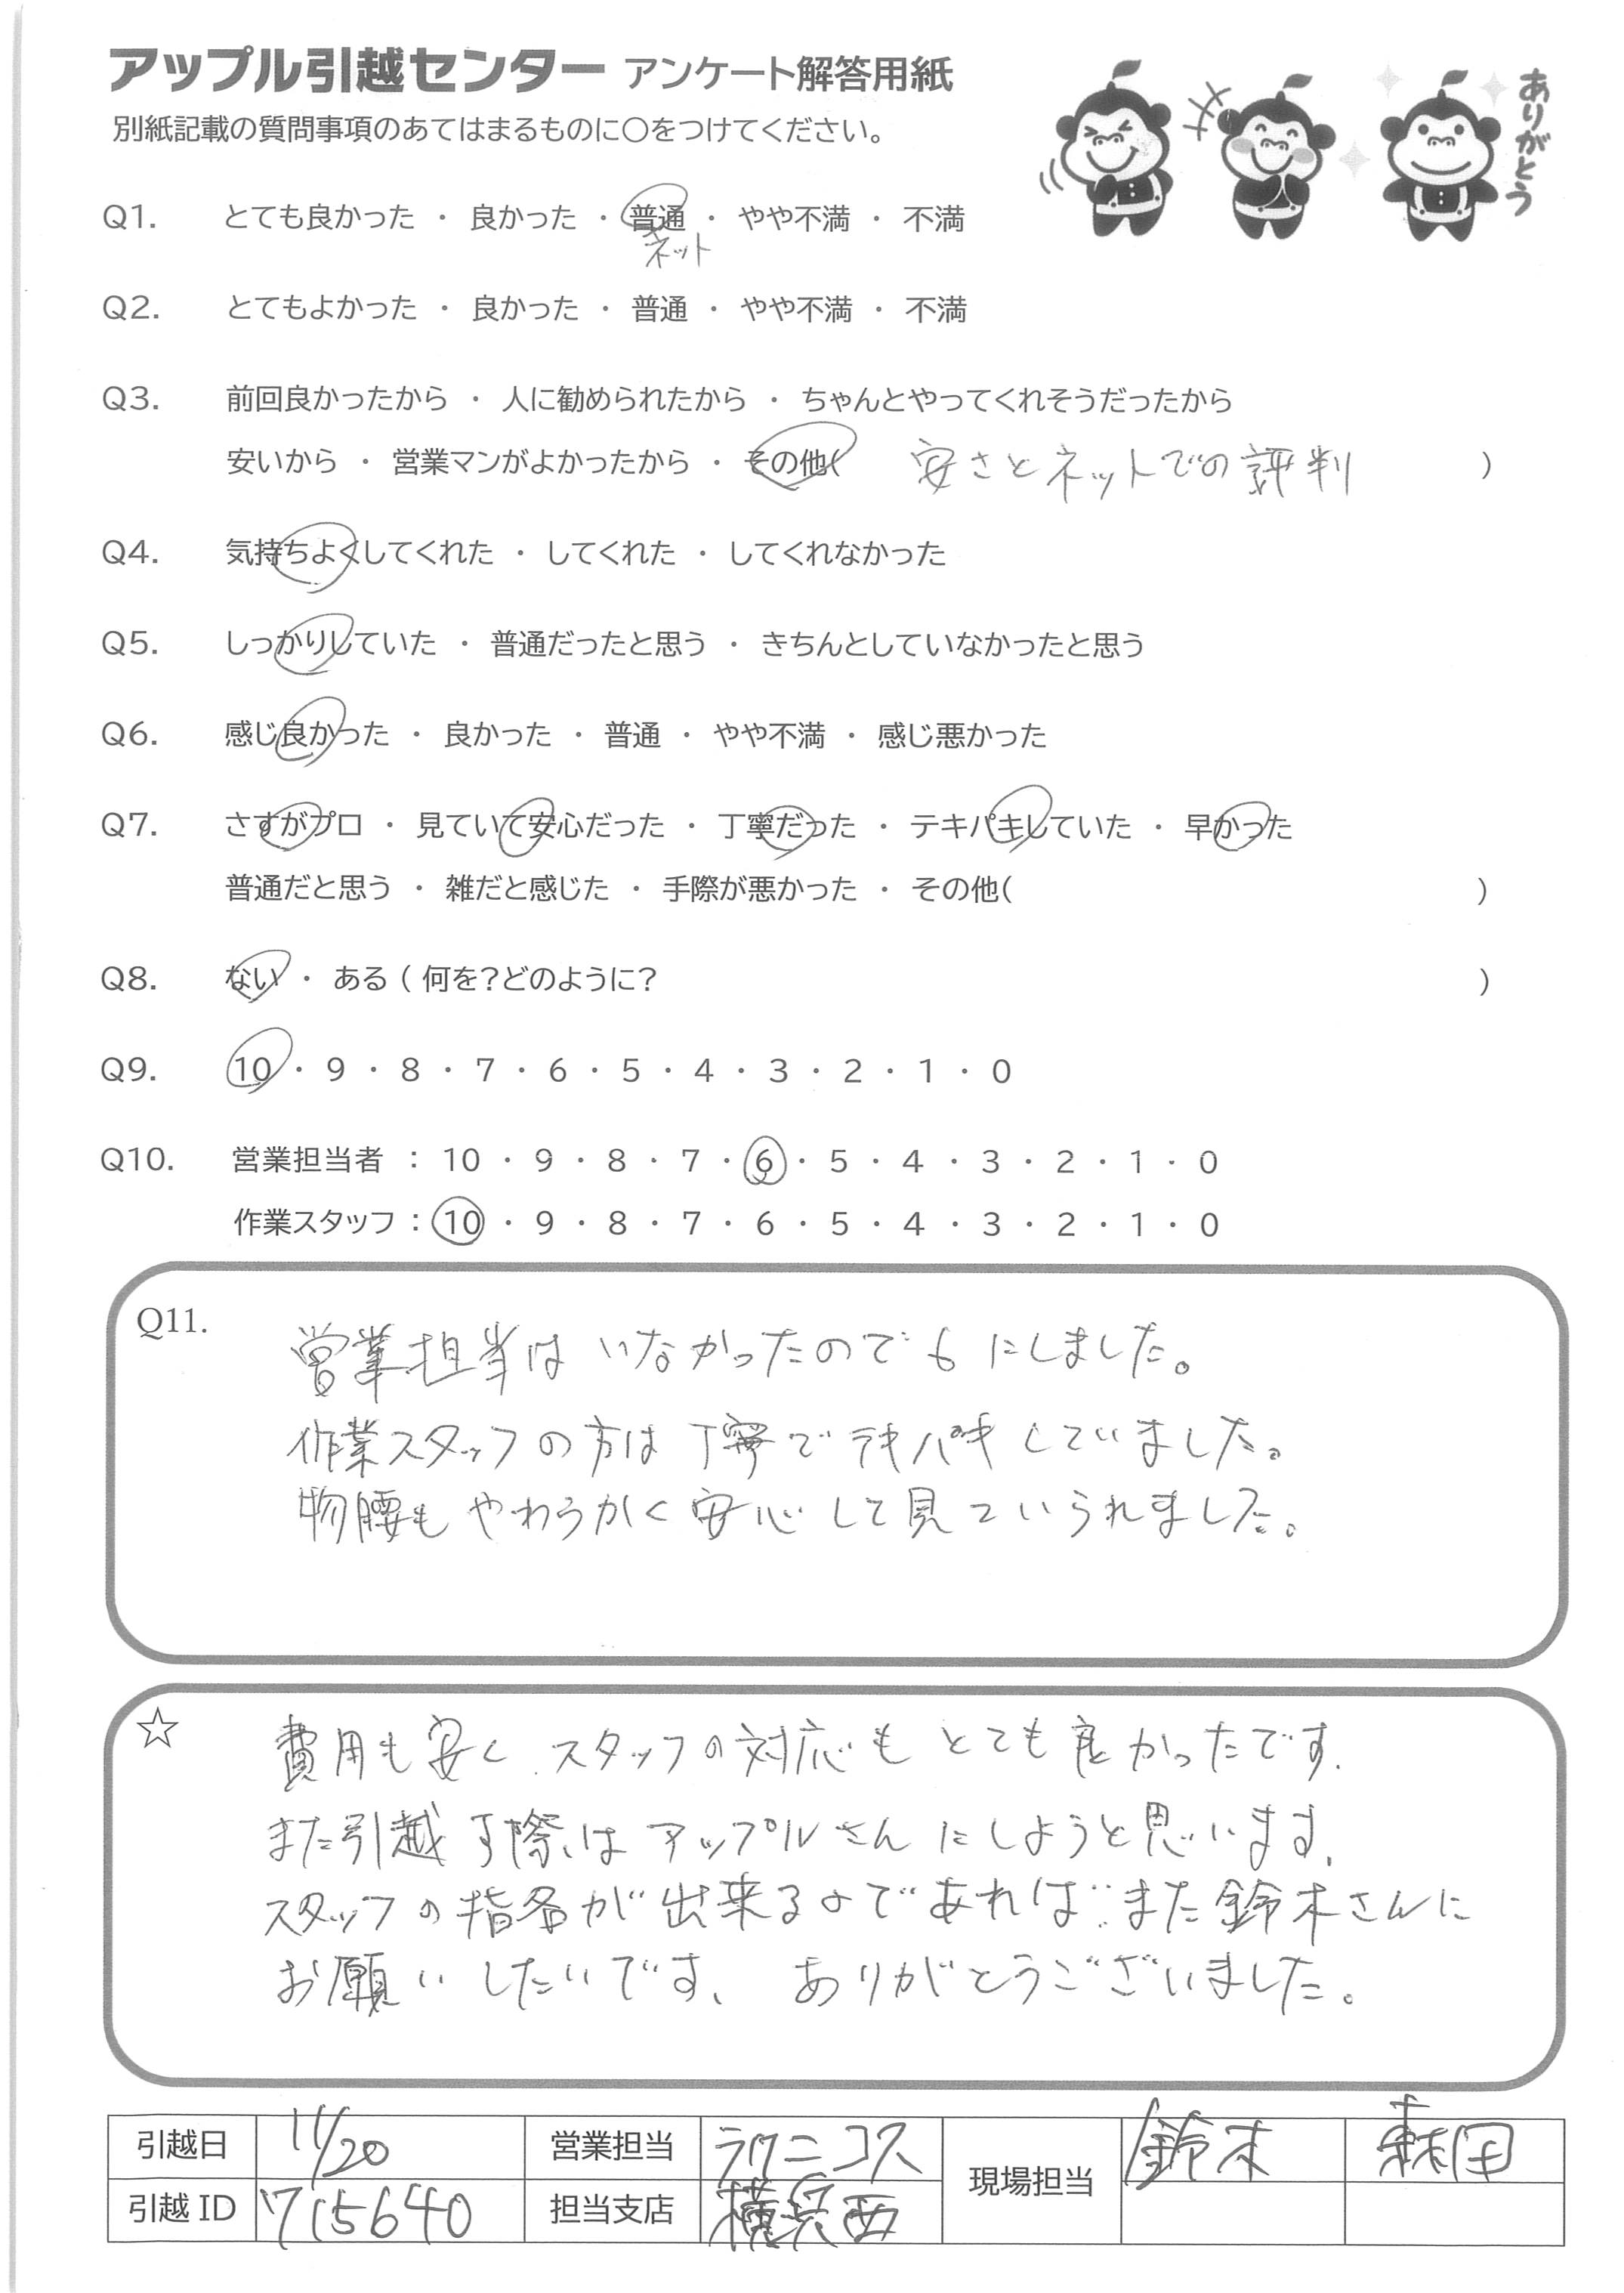 アップル引越センター アンケート解答用紙
別紙記載の質問事項のあてはまるものに〇をつけてください。
ありがとう
Q1. とても良かった ・ 良かった ・ 普通 ・ やや不満 ・ 不満
ネット
Q2. とてもよかった ・ 良かった ・ 普通 ・ やや不満 ・ 不満
Q3. 前回良かったから ・ 人に勧められたから ・ ちゃんとやってくれそうだったから
安いから ・ 営業マンがよかったから ・ その他( 安さとネットでの評判 )
Q4. 気持ちよくしてくれた ・ してくれた ・ してくれなかった
Q5. しっかりしていた ・ 普通だったと思う ・ きちんとしていなかったと思う
Q6. 感じ良かった ・ 良かった ・ 普通 ・ やや不満 ・ 感じ悪かった
Q7. さすがプロ ・ 見ていて安心だった ・ 丁寧だった ・ テキパキしていた ・ 早かった
普通だと思う ・ 雑だと感じた ・ 手際が悪かった ・ その他( )
Q8. ない ・ ある ( 何を?どのように? )
Q9. 10 ・ 9 ・ 8 ・ 7 ・ 6 ・ 5 ・ 4 ・ 3 ・ 2 ・ 1 ・ 0
Q10. 営業担当者 : 10 ・ 9 ・ 8 ・ 7 ・ 6 ・ 5 ・ 4 ・ 3 ・ 2 ・ 1 ・ 0
作業スタッフ : 10 ・ 9 ・ 8 ・ 7 ・ 6 ・ 5 ・ 4 ・ 3 ・ 2 ・ 1 ・ 0
Q11.
営業担当はいなかったので6にしました。
作業スタッフの方は丁寧でテキパキしていました。
物腰もやわらかく安心して見ていられました。
☆
費用も安く、スタッフの対応もとても良かったです.
また引越す際はアップルさんにしようと思います.
スタッフの指名が出来るのであればまた鈴木さんに
お願いしたいです、ありがとうございました。
引越日 11/20 営業担当 ラクニコス 現場担当 鈴木 森田
引越ID 715640 担当支店 横浜西